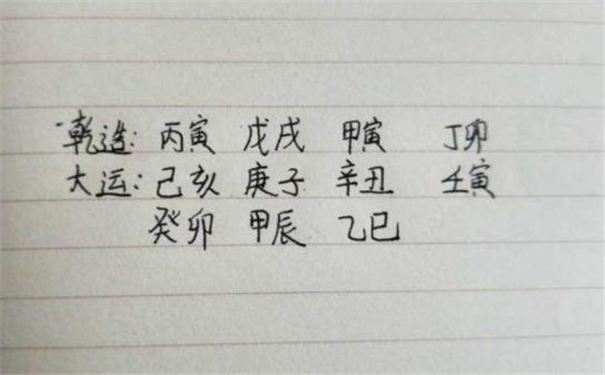 乾造: 丙寅 戊戌 甲寅 丁卯
大运: 己亥 庚子 辛丑 壬寅
癸卯 甲辰 乙巳